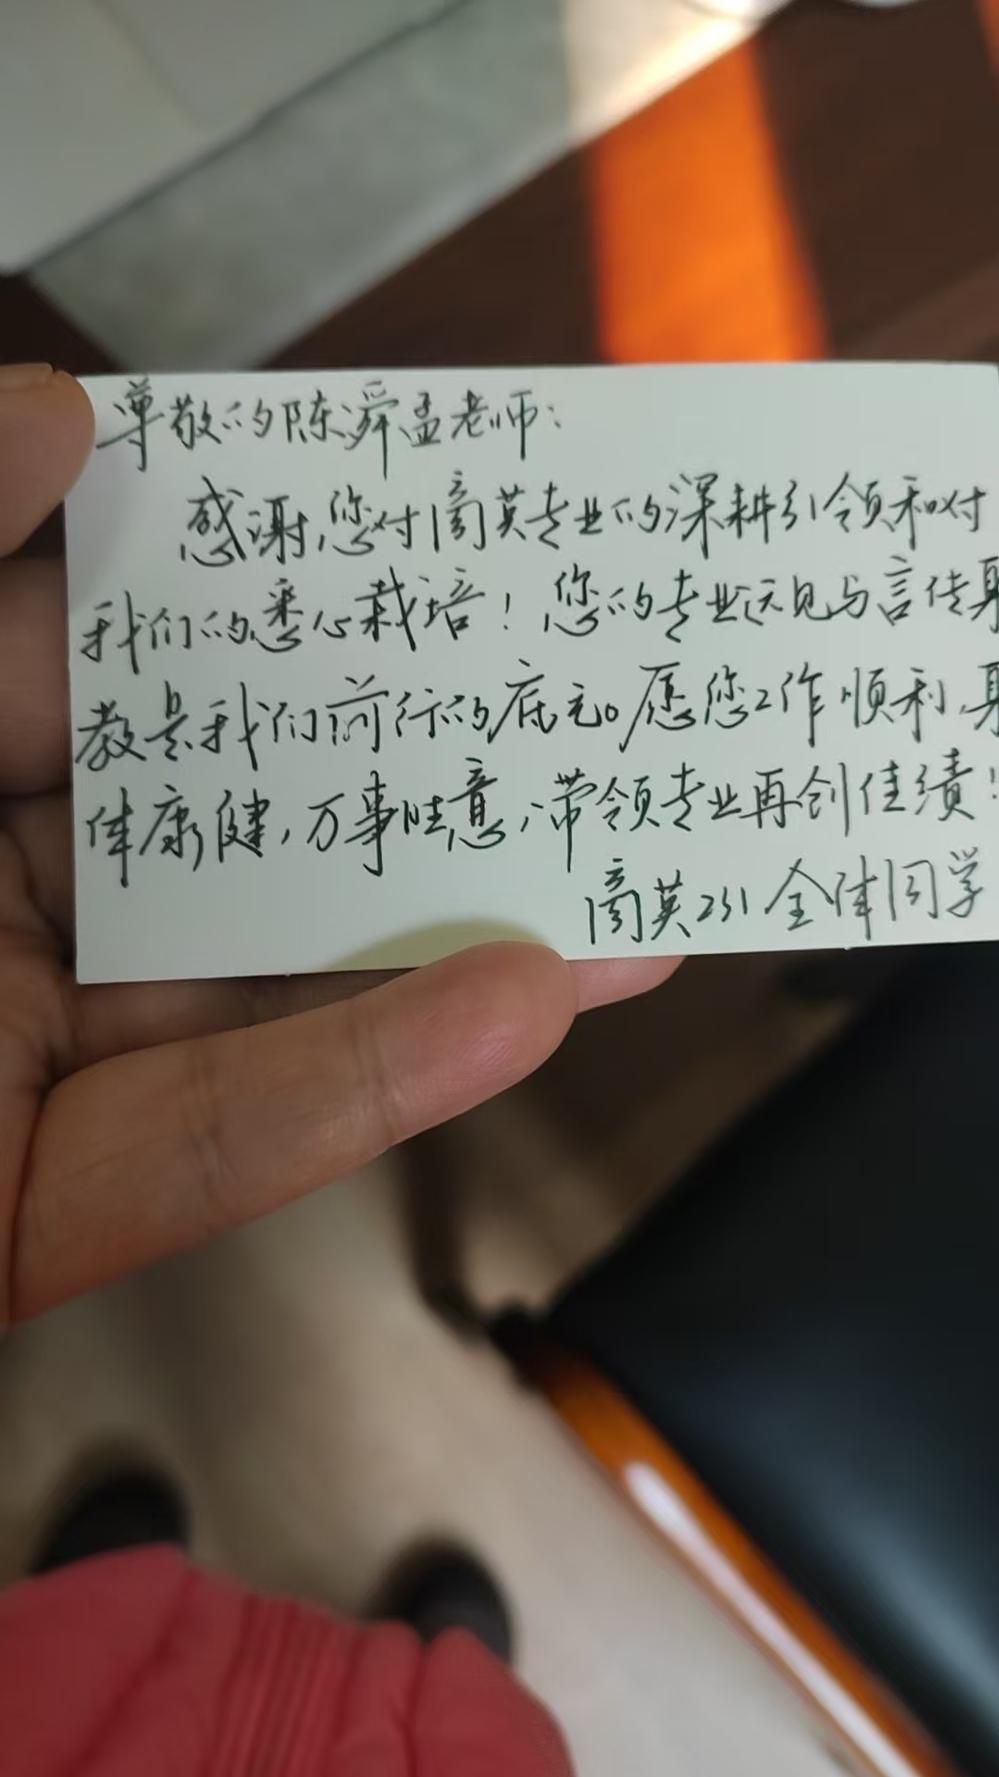 尊敬的陈舜孟老师：
感谢您对商英专业的深耕引领和对
我们的悉心栽培！您的专业远见与言传身
教是我们前行的底气。愿您工作顺利，身
体康健，万事胜意，带领专业再创佳绩！
商英231全体同学